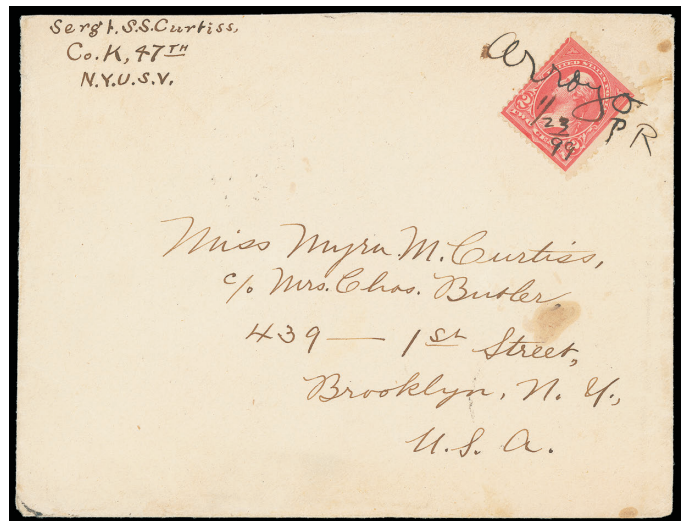 Sergt. S.S. Curtiss,
Co. K, 47TH
N.Y.U.S.V.
Arroyo
P R
1/23
99
Miss Myra M. Curtiss,
c/o Mrs. Chas. Butler
439 — 1st Street,
Brooklyn, N. Y.,
U. S. A.